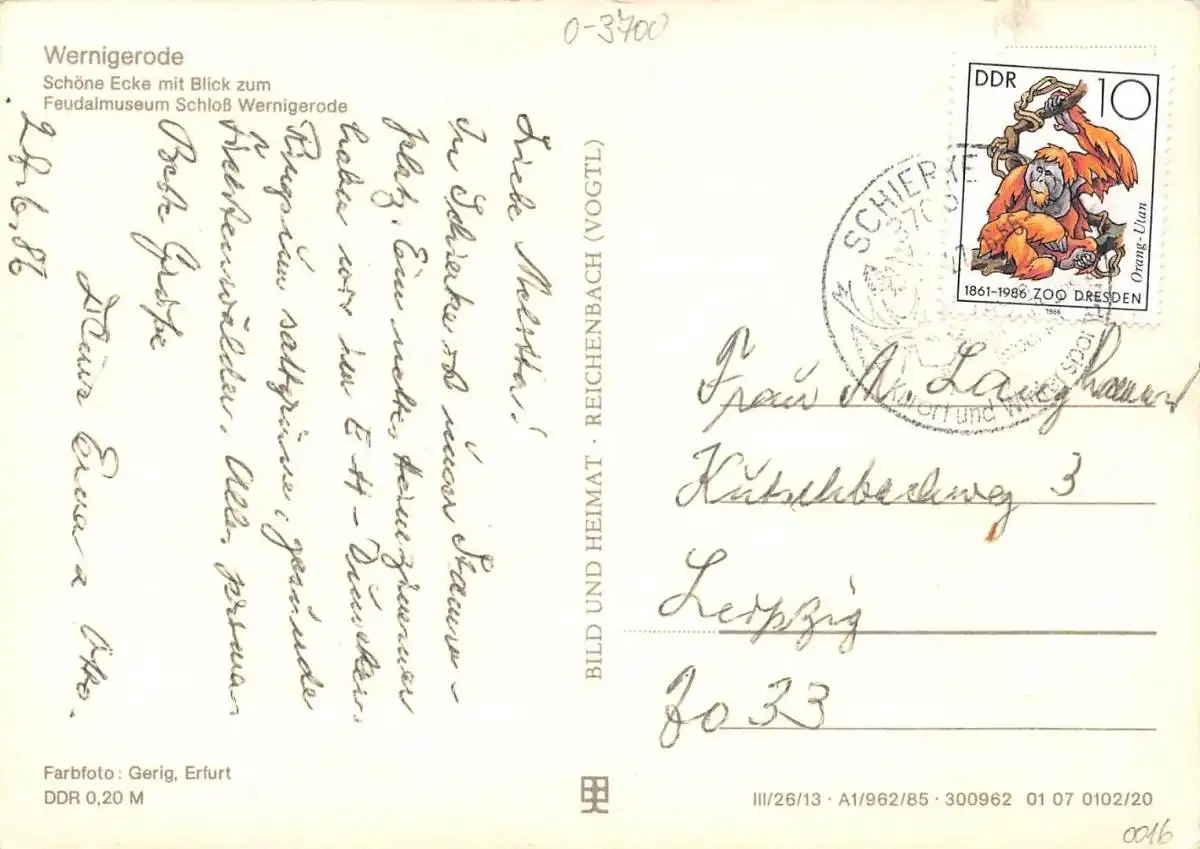 0-3700
Wernigerode
Schöne Ecke mit Blick zum
Feudalmuseum Schloß Wernigerode
Liebe Melitta!
In Schierke ist unser Stamm-
platz. Ein nettes Heimzimmer
haben wir im E H -
Ringsum sattgrüne, gesunde
Fichtenwälder. Alles prima.
Beste Grüße
Deine Erna u Otto.
27.6.86
BILD UND HEIMAT · REICHENBACH (VOGTL)
DDR 10
Orang-Utan
1861-1986 ZOO DRESDEN
1986
SCHIERKE
370
Kurort und Wintersport
Frau M. Langhammer
Kutschbachweg 3
Leipzig
7033
Farbfoto: Gerig, Erfurt
DDR 0,20 M
III/26/13 · A1/962/85 · 300962 01 07 0102/20
0016